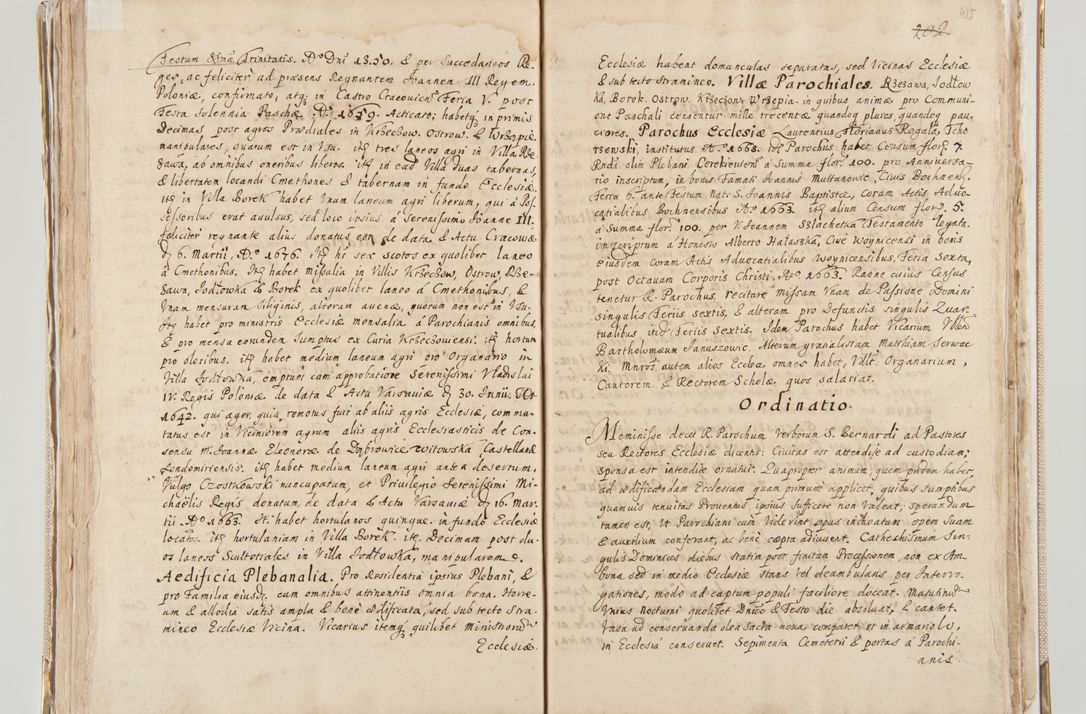 Festum SSmæ Trinitatis. Aº Dni 1350. & per Succedaneos Re-
ges, ac feliciter ad præsens Regnantem Joannem III Regem
Poloniæ, confirmato, atq; in Castro Cracovien: Feria V. post
Festa Solennia Paschæ Aº 1659. Acticato; habetq; in primis
Decimas post agros Prædiales in Krzeczow. Ostrow. & Wrzępie.
manipulares, quarum est in Usu. itq; tres laneos agri in Villa Rze-
zawa, ab omnibus oneribus liberos. itq; in ead Villa duas tabernas,
& libertatem locandi Cmethones & tabernam in fundo Ecclesiæ.
itq; in Villa Borek habet Unum laneum agri liberum, qui à Pos-
sessoribus erat avulsus, sed loco ipsius à Serenissimo Joanne III.
feliciter regnante alius donatus est, de data, & Actu Cracoviæ
d. 6. Martii. Aº 1676. Itq; hi sex scotos ex quolibet laneo
à Cmethonibus. Itq; habet missalia in Villis Krzeczow, Ostrow, Rze-
zawa, Jodłowka & Borek ex quolibet laneo à Cmethonibus, &
Unam mensuram siliginis, alteram avenæ, quorum non est in Usu.
Itq; habet pro ministris Ecclesiæ mensalia à Parochianis omnibus,
& pro mensa eorundem Sumptus ex Curia Krzeczoviensi. itq; hortum
pro oleribus. itq; habet medium laneum agri pro Organario in
Villa Jodłowka, emptum cum approbatione Serenissimi Vladislai
IV. Regis Poloniæ de data & Actu Varsaviæ d. 30. Junii. Aº
1642. qui ager, quia remotus fuit ab aliis agris Ecclesiæ, commu-
tatus est in Viciniorem agrum aliis agris Ecclesiasticis de Con-
sensu M. Joannæ Eleonoræ de Dąbrowice Witowska Castellanæ
Sendomiriensis. itq; habet medium laneum agri antea desertum,
vulgo Czostkowski nuncupatum, et Privilegio Serenissimi Mi-
chaëlis Regis donatum, de data & Actu Varsaviæ d. 16. Mar-
tii Aº 1663. It. habet hortulanos quinque in fundo Ecclesiæ
locatos. itq; hortulaniam in Villa Borek. itq; Decimam post du-
os laneos Scultetiales in Villa Jodłowka, manipularem.
Aedificia Plebanalia. Pro Residentia ipsius Plebani, &
pro Familia eiusd. cum omnibus attinentiis omnia bona. Horre-
um & allodia satis ampla & benè ædificata, sed sub tecto stra-
mineo Ecclesiæ Vicina. Vicarius itemq; quilibet ministrorum
Ecclesiæ.
415
202
Ecclesiæ habent domunculas separatas, sed Vicinas Ecclesiæ
& sub tecto stramineo. Villæ Parochiales. Rzezawa, Jodłow
ka, Borek. Ostrow. Krzeczow. Wrzepia. in quibus animæ pro Communi-
one Paschali censentur mille trecentæ, quandoq; plures, quandoq; pau-
ciores. Parochus Ecclesiæ Laurentius Florianus Rogala, Tcho
rzewski, institutus Aº 1668. idq; Parochus habet Censum flor. 7.
Rndi. olim Plebani Cerekievensis à Summa flor. 100. pro Anniversa-
rio inscriptum, in bonis Famati Joannis Multanowic, Civis Bochnen.
Feria 6. ante Festum Nat. S. Joannis Baptistæ, coram Actis Advo-
catialibus Bochnensibus Aº 1663. itq; alium Censum flor. 5.
à Summa flor. 100. per V. Joannem Szlachetka Testamento legata.
inscriptum à Honesto Alberto Hałaszka, Cive Woynicensi in bonis
eiusdem Coram Actis Advocatialibus Woynicensibus, Feria Sexta,
post Octavam Corporis Christi. Aº. 1663. Raone cuius Census
tenetur R. Parochus recitare Missam Unam de Passione Domini
singulis Feriis sextis, & alteram pro Defunctis singulis Quar-
tualibus itid Feriis Sextis. Idem Parochus habet Vicarium Vblem
Bartholomæum Januszowic. Alterum granalistam Matthiam Serwac
ki. Mnros, autem alios Eccliæ omnes habet, Vdlt. Organarium,
Cantorem & Rectorem Scholæ quos salariat.
Ordinatio.
Meminisse decet R. Parochum Verborum S. Bernardi ad Pastores
seu Rectores Ecclesiæ dicens: Civitas est attendite ad custodiam;
sponsa est intendite ornatui. Quapropter animum, quem pridem habet,
ad ædificandam Ecclesiam quam primum applicet, quibus sumptibus
quamvis tenuitas Proventus ipsius sufficere non Valeat, sperandum
tamen est, Ut Parochiani cum Viderint opus inchoatum opem Suam
& auxilium conferant, ac benè cœpta adiuvent. Cathechismum Sin-
gulis Dominicis diebus statim post finitam Processionem, non ex Am-
bona sed in medio Ecclesiæ stans vel deambulans per Interro-
gationes, modo ad captum populi faciliore doceat. Matutinum
Unius Nocturni quolibet Dnico & Festo die absolvat, & cantet.
Vasa ad conservanda olea Sacra nova comparet et in armariolo,
in Ecclesia conservet. Sepimenta Cemeterii & portas à Parochi-
anis